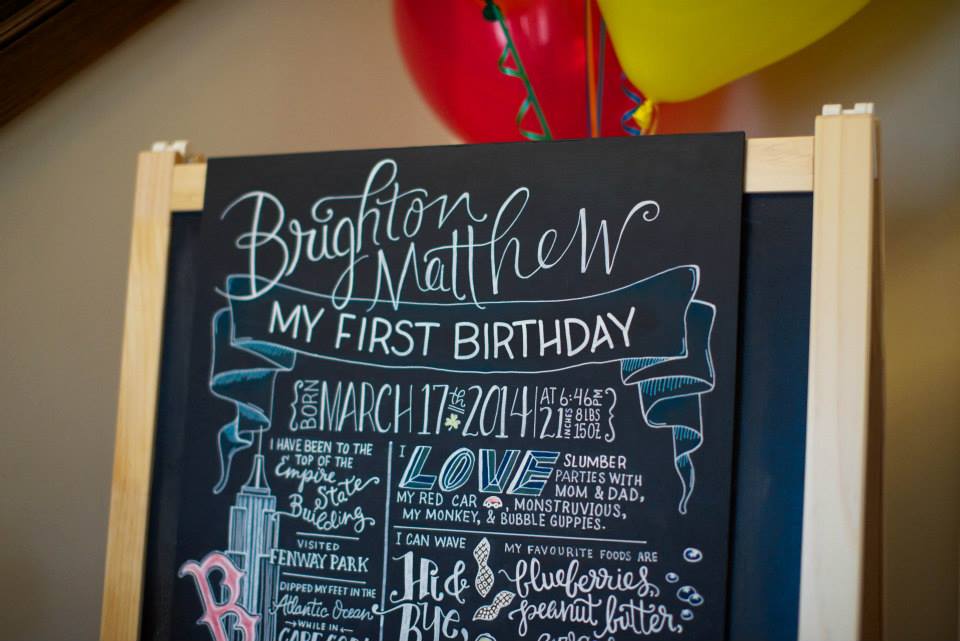 Brighton
Matthew
MY FIRST BIRTHDAY
BORN MARCH 17th 2014 AT 6:46PM
21 INCHES 8LBS
15OZ
I HAVE BEEN TO THE
TOP OF THE
Empire
State
Building
VISITED
FENWAY PARK
DIPPED MY FEET IN THE
Atlantic Ocean
WHILE IN
CAPE COD
B
I LOVE SLUMBER
PARTIES WITH
MOM & DAD,
MY RED CAR, MONSTRUVIOUS,
MY MONKEY, & BUBBLE GUPPIES.
I CAN WAVE
Hi &
Bye,
MY FAVOURITE FOODS ARE
blueberries,
peanut butter,